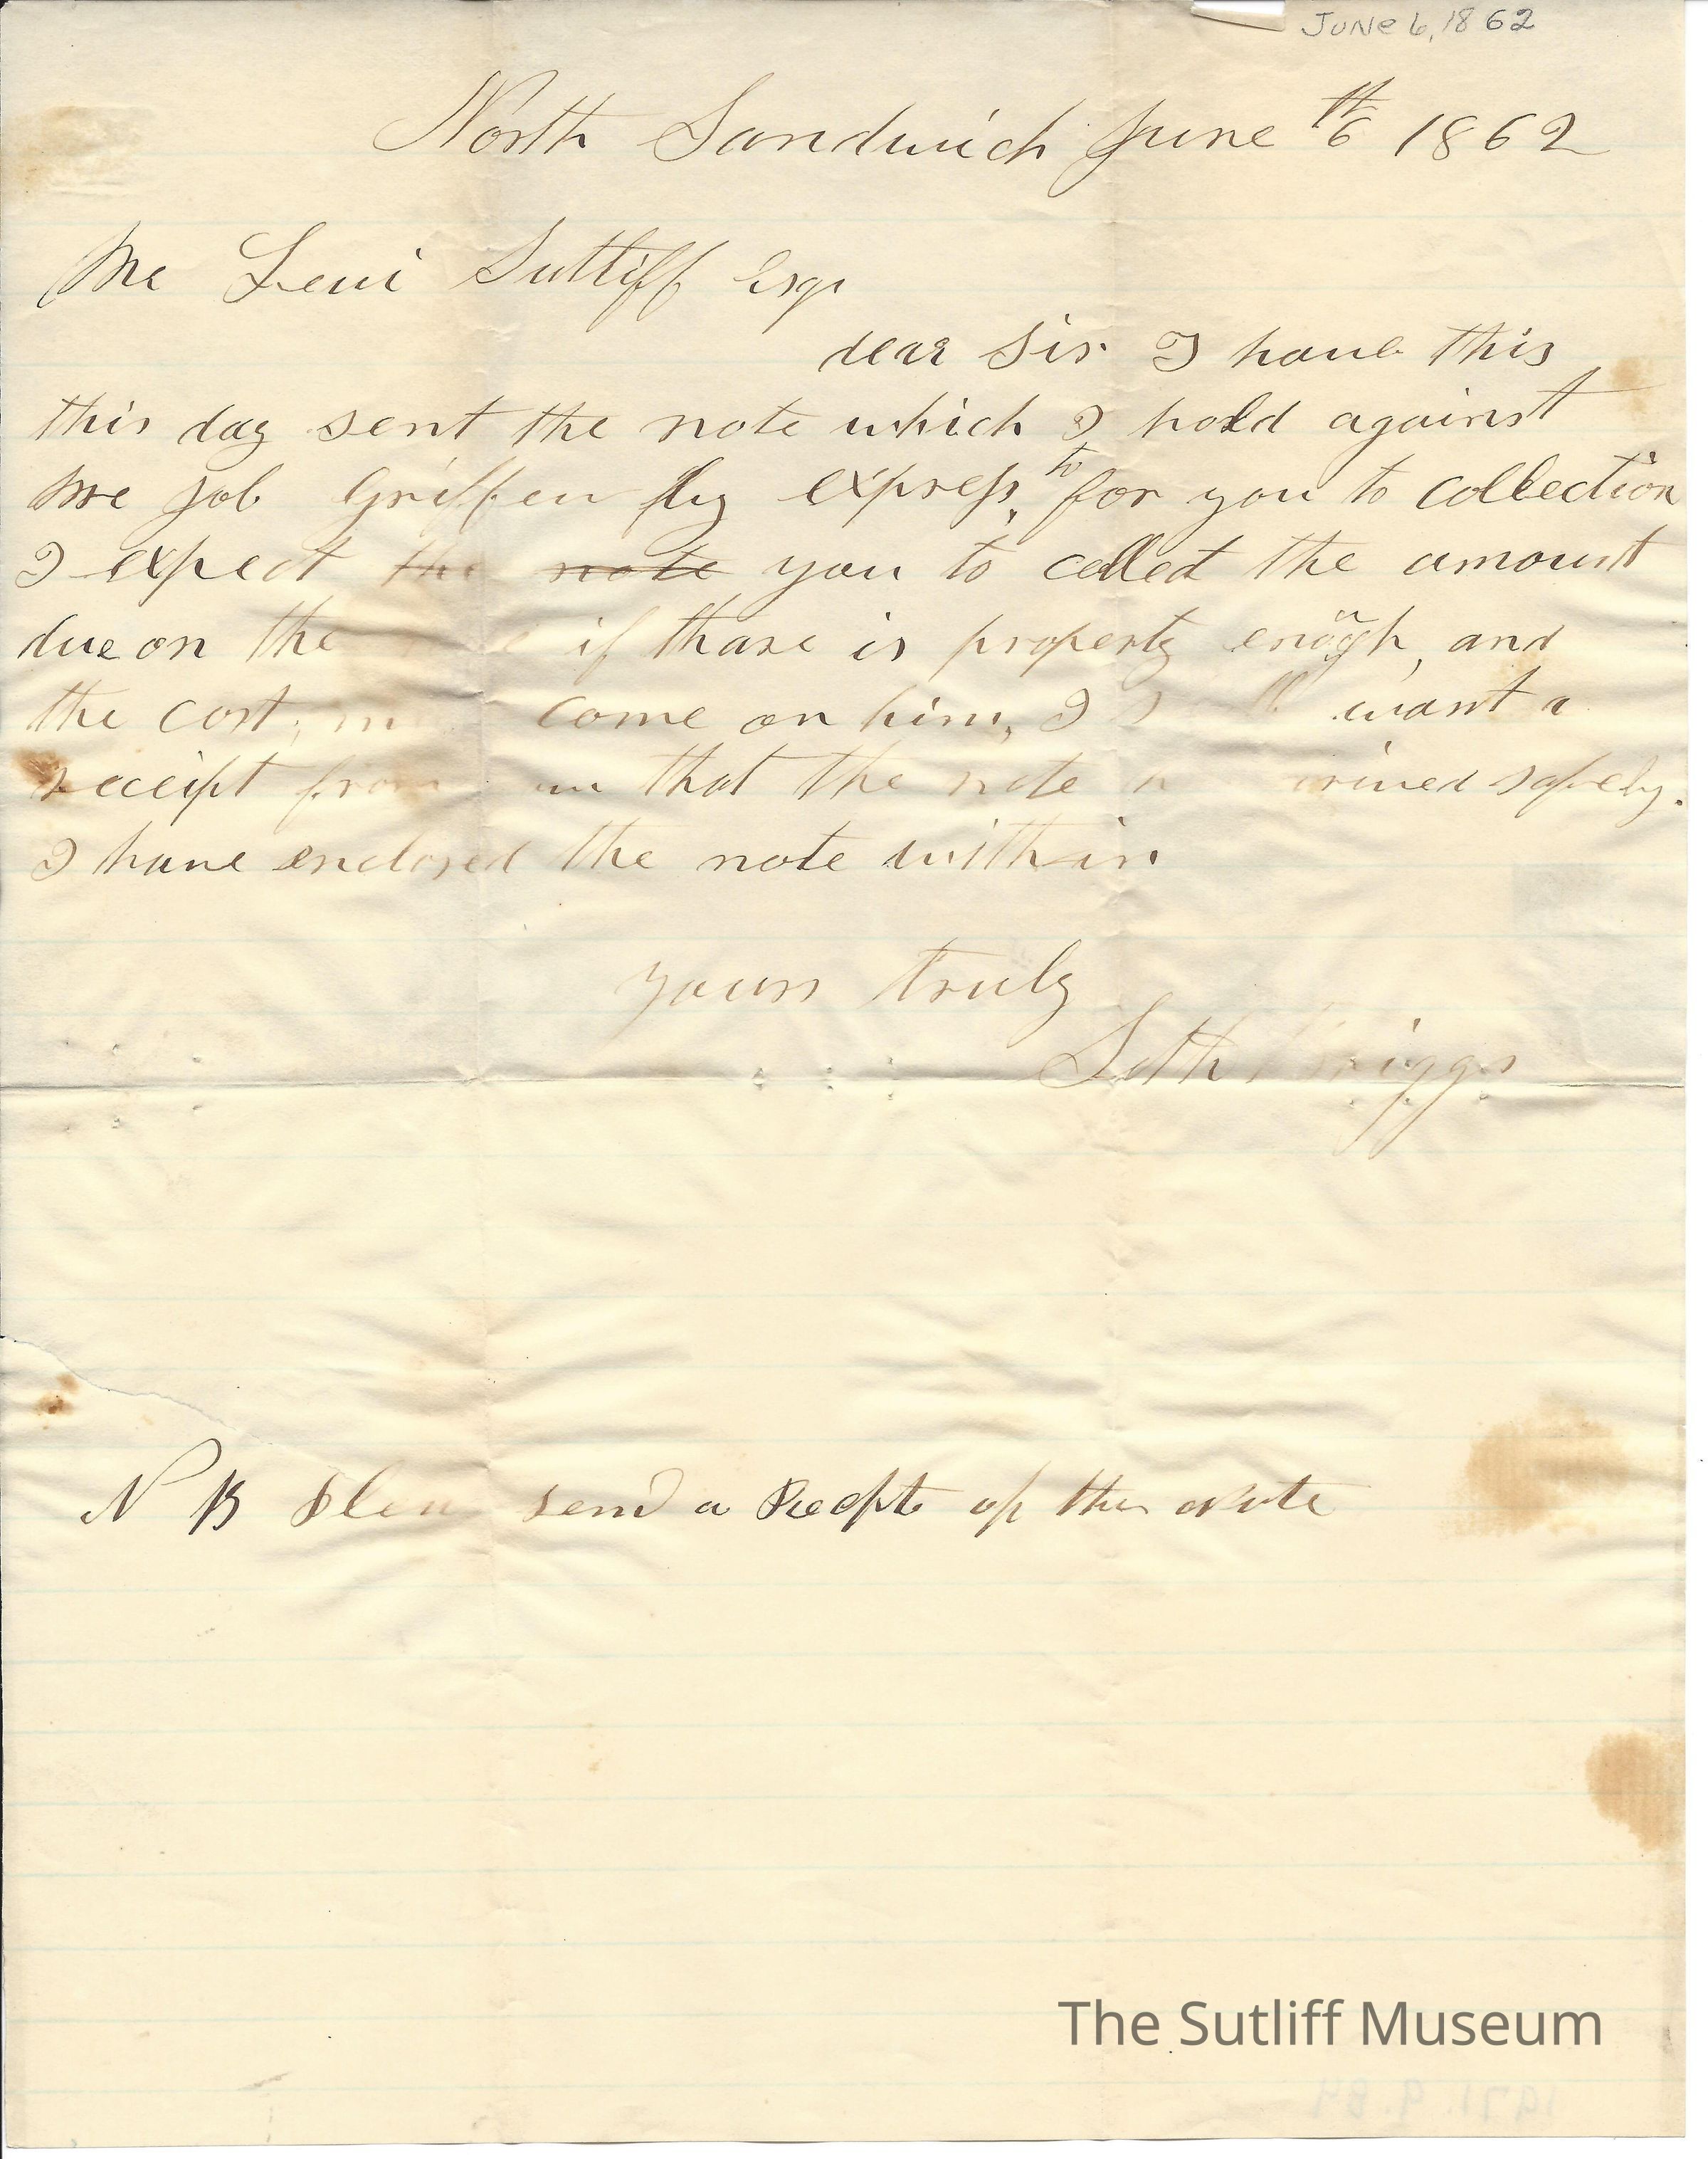 JUNE 6, 1862
North Sandwich June 6th 1862
Mr Levi Sutliff Esqr
dear Sir I have this
this day sent the note which I hold against
Mr Job Griffen by express, to for you to collection
I expect the note you to collect the amount
due on the if thare is property enough, and
the cost, come on him, I want a
receipt from that the note safely.
I have enclosed the note within
yours truly
Seth Briggs
N B send a Recept of the note
The Sutliff Museum
1971.9.84